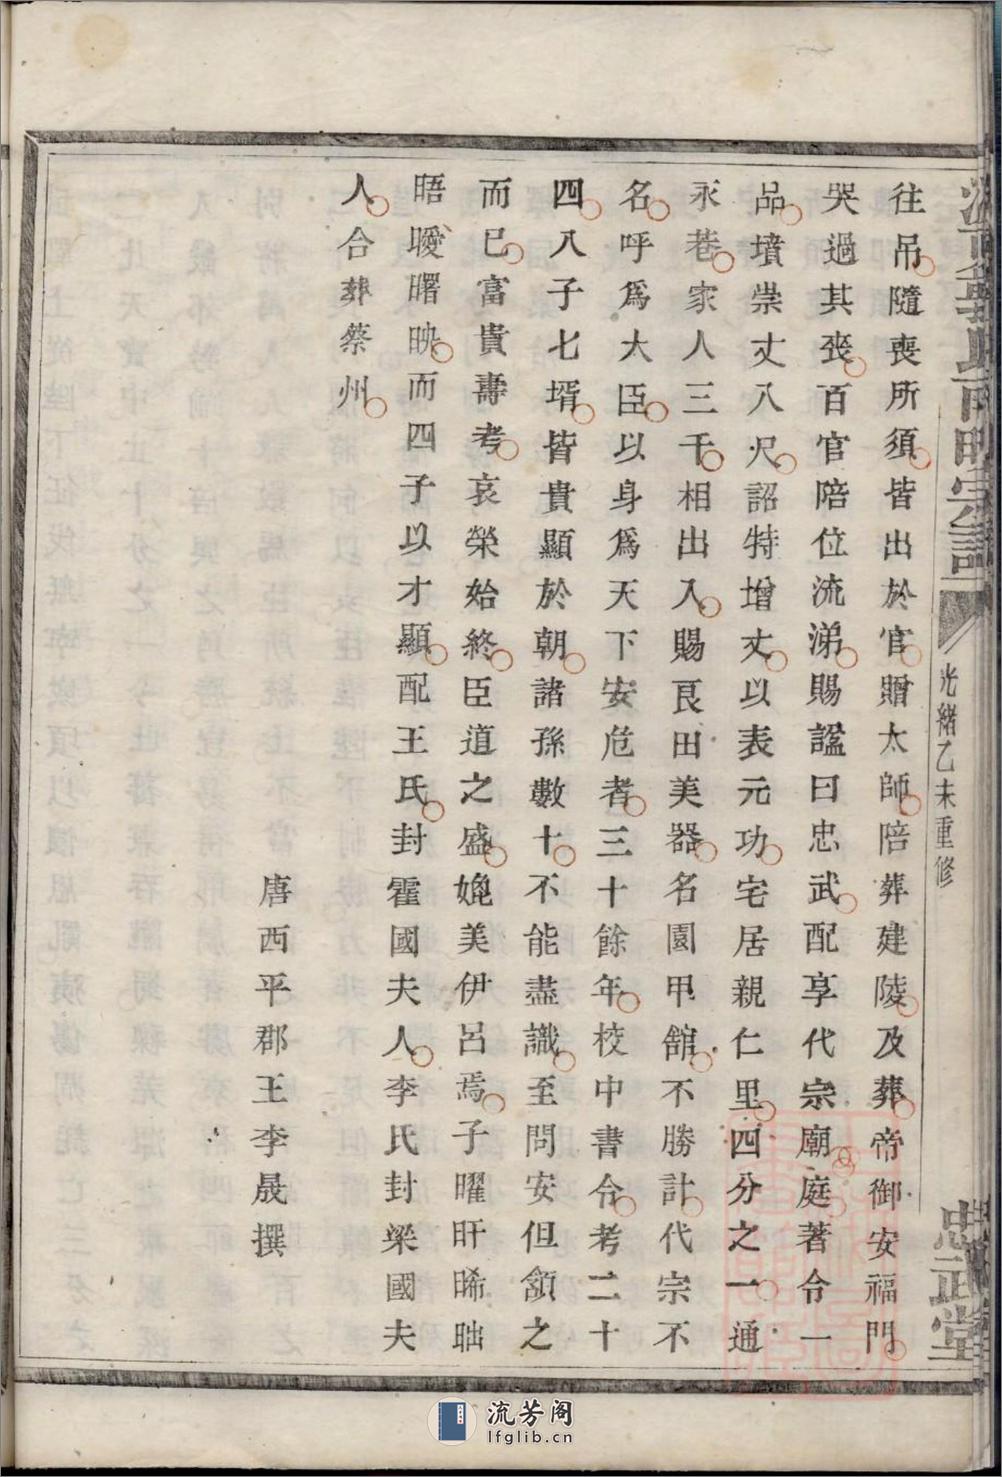 往吊隨喪所須皆出於官贈太師陪葬建陵及葬帝御安福門
哭過其喪百官陪位流涕賜謚曰忠武配享代宗廟庭著令一
品墳崇丈八尺詔特增丈以表元功宅居親仁里四分之一通
永巷家人三千相出入賜良田美器名園甲舘不勝計代宗不
名呼爲大臣以身爲天下安危者三十餘年校中書令考二十
四八子七壻皆貴顯於朝諸孫數十不能盡識至問安但頷之
而已富貴壽考哀榮始終臣道之盛媲美伊呂焉子曜旰晞昢
晤曖曙映而四子以才顯配王氏封霍國夫人李氏封梁國夫
人合葬蔡州
唐西平郡王李晟撰
光緒乙未重修
忠武堂
流芳阁
lfglib.cn